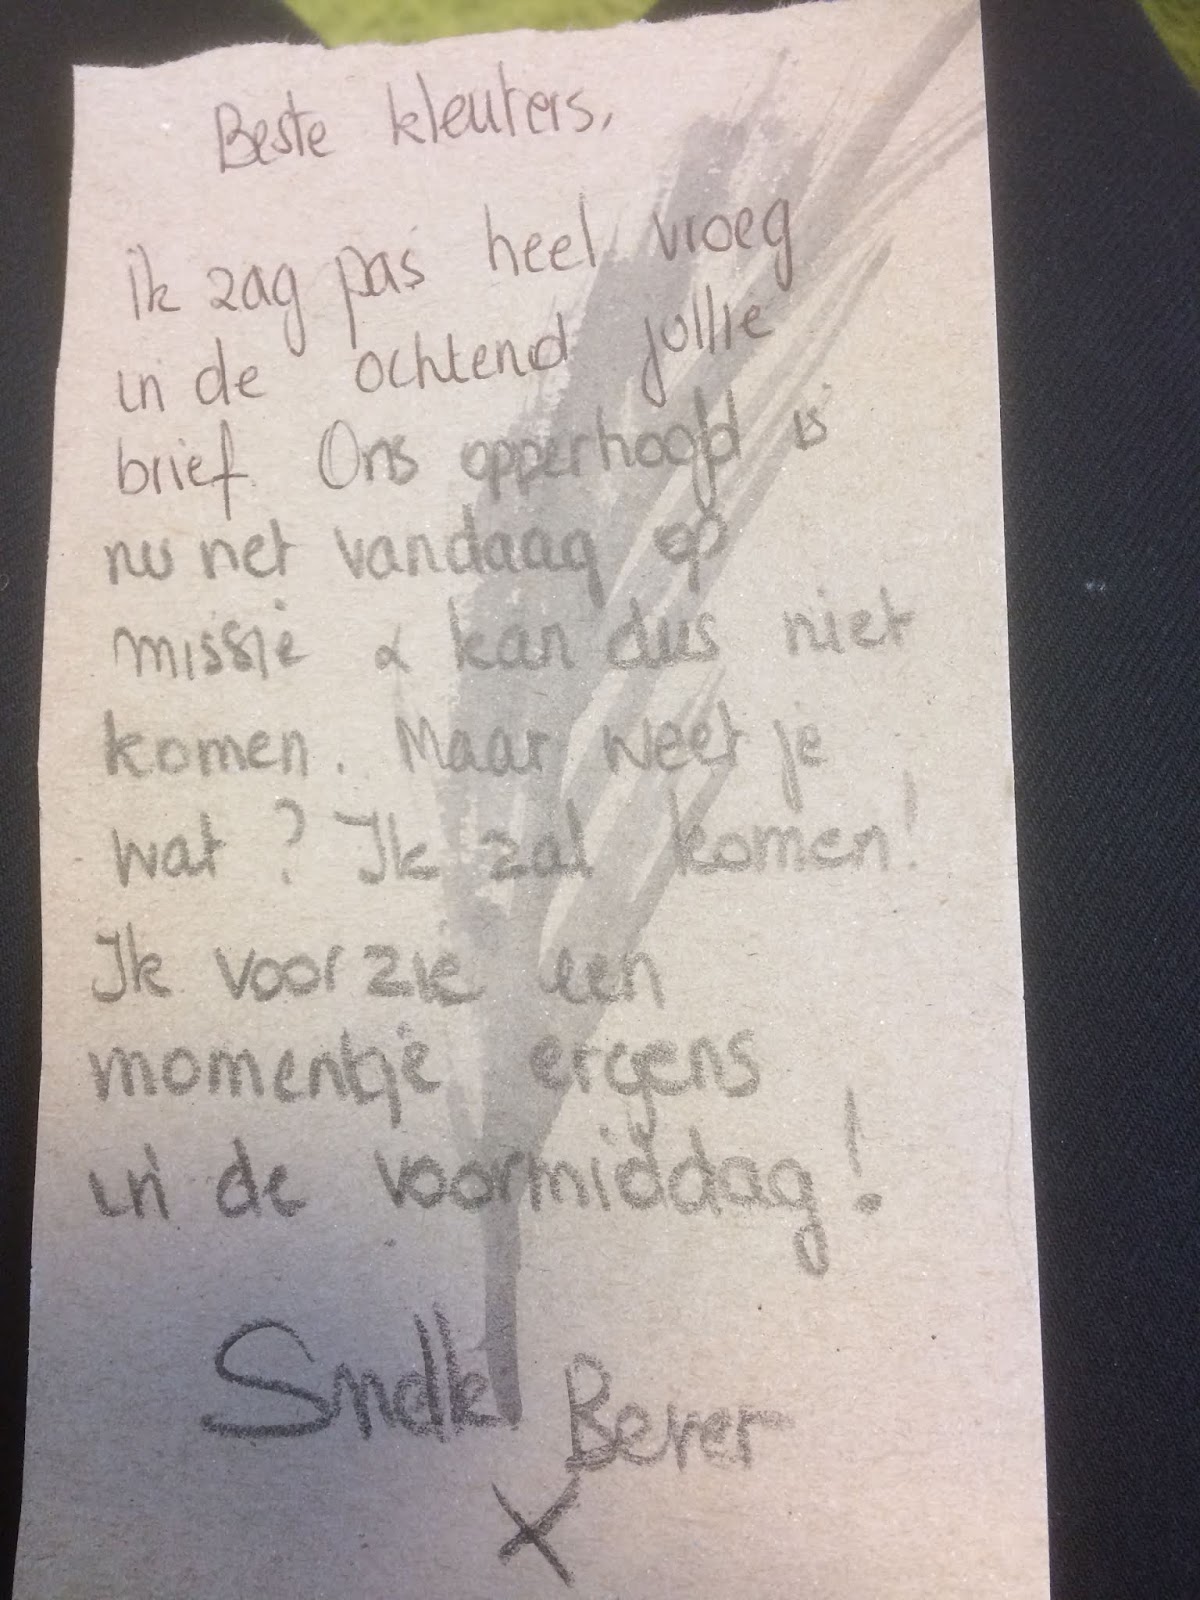 Beste kleuters,
ik zag pas heel vroeg
in de ochtend jullie
brief. Ons opperhoofd is
nu net vandaag op
missie & kan dus niet
komen. Maar weet je
wat? Ik zal komen!
Ik voorzie een
momentje ergens
in de voormiddag!
Snelle Bever
X